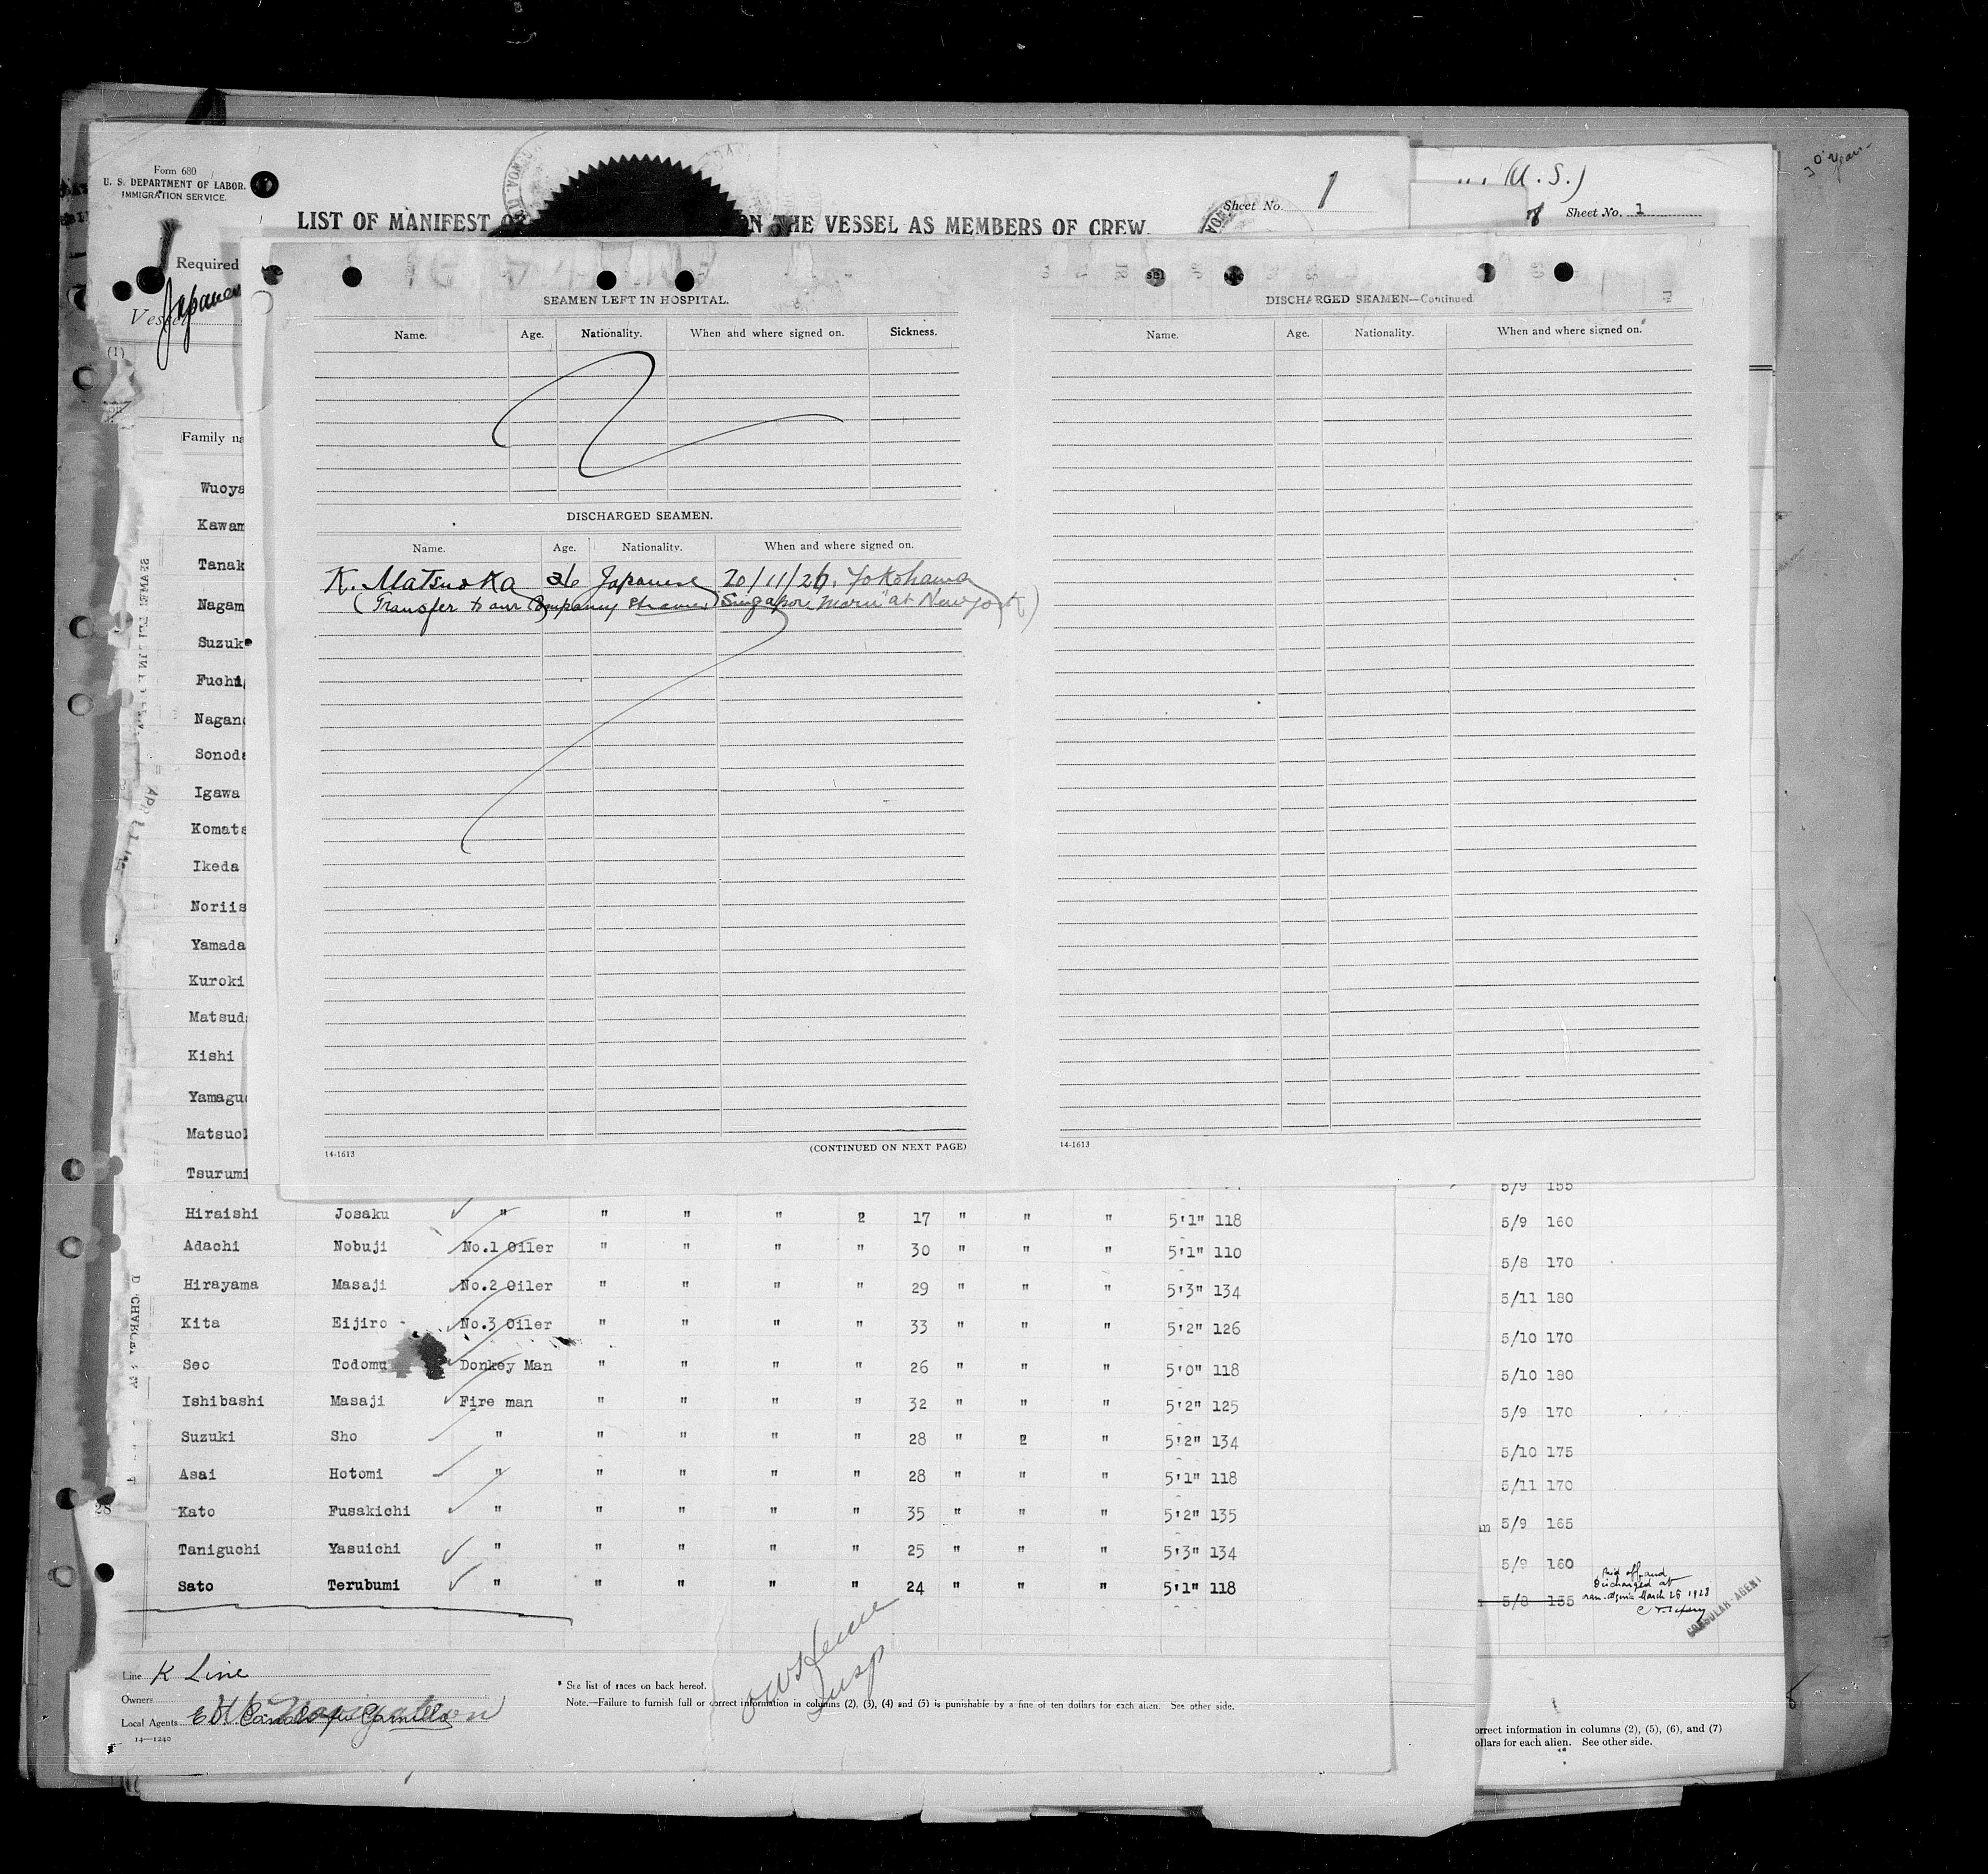 Form 680
U. S. DEPARTMENT OF LABOR.
IMMIGRATION SERVICE.
LIST OF MANIFEST THE VESSEL AS MEMBERS OF CREW.
Sheet No. 1
(U. S.)
Sheet No. 1
Required
Vessel
(1)
SEAMEN LEFT IN HOSPITAL.
Name. Age. Nationality. When and where signed on. Sickness.
DISCHARGED SEAMEN.
Name. Age. Nationality. When and where signed on.
K. Matsuoka 26 Japanese 20/11/26. Yokohama
(Transfer to our Company Steamer "Singapore Maru" at New York)
14-1613 (CONTINUED ON NEXT PAGE)
DISCHARGED SEAMEN—Continued
Name. Age. Nationality. When and where signed on.
14-1613
Family na
Wuoya
Kawam
Tanak
Nagam
Suzuk
Fuchi
Nagano
Sonoda
Igawa
Komats
Ikeda
Noriis
Yamada
Kuroki
Matsud
Kishi
Yamagu
Matsuo
Tsurumi
Hiraishi Josaku " " " " 2 17 " " " 5'1" 118
Adachi Nobuji No.1 Oiler " " " " 30 " " " 5'1" 110
Hirayama Masaji No.2 Oiler " " " " 29 " " " 5'3" 134
Kita Eijiro No.3 Oiler " " " " 33 " " " 5'2" 126
Seo Todomu Donkey Man " " " " 26 " " " 5'0" 118
Ishibashi Masaji Fire man " " " " 32 " " " 5'2" 125
Suzuki Sho " " " " " 28 " 2 " 5'2" 134
Asai Hotomi " " " " " 28 " " " 5'1" 118
28 Kato Fusakichi " " " " " 35 " " " 5'2" 135
Taniguchi Yasuichi " " " " " 25 " " " 5'3" 134
Sato Terubumi " " " " " 24 " " " 5'1" 118
5/9 155
5/9 160
5/8 170
5/11 180
5/10 170
5/10 180
5/9 170
5/10 175
5/11 170
5/9 165
5/9 160
5/8 155
Paid off and
Discharged at
March 26 1928
CONSULAR AGENT
Line K Line
Owners
Local Agents
14—1240
* See list of races on back hereof.
Note.—Failure to furnish full or correct information in columns (2), (3), (4) and (5) is punishable by a fine of ten dollars for each alien. See other side.
orrect information in columns (2), (5), (6), and (7)
ollars for each alien. See other side.